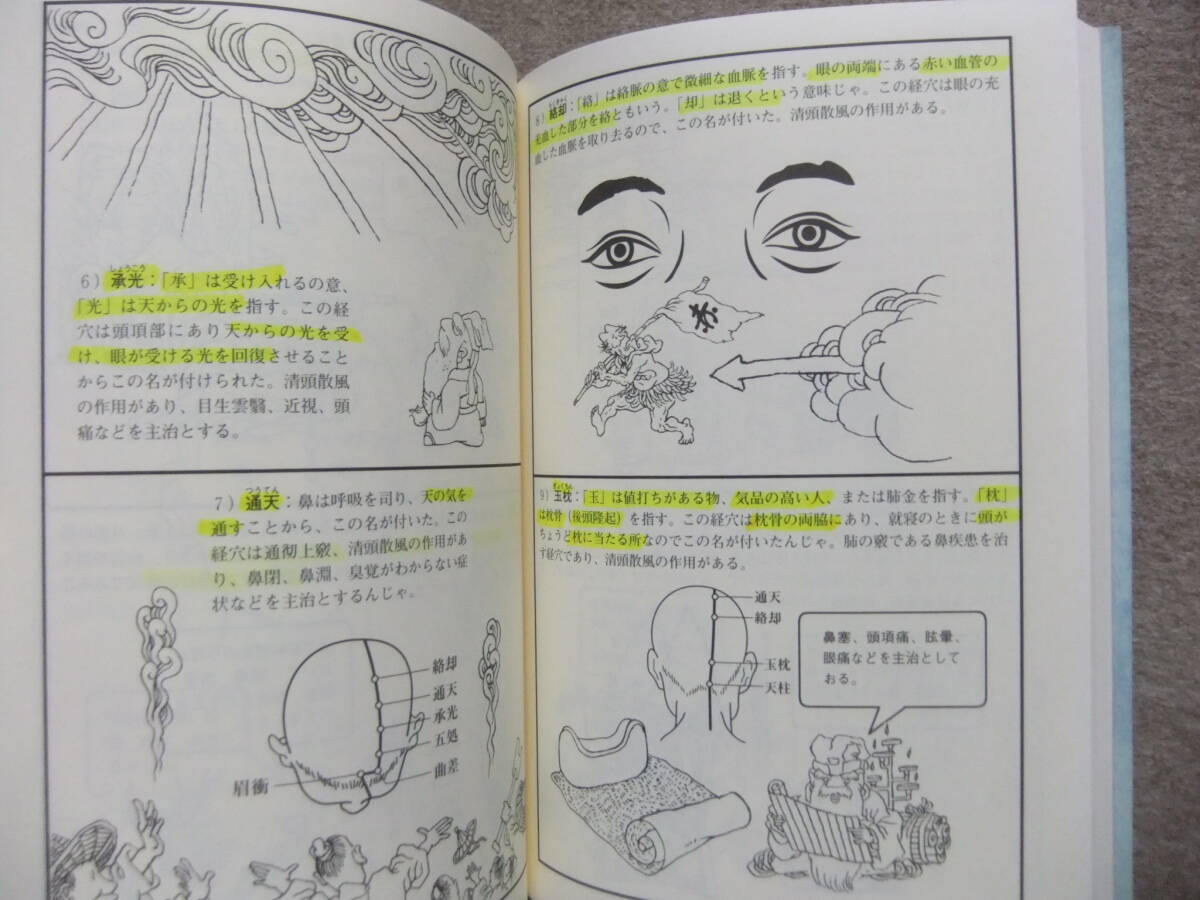 しょうこう
6）承光：「承」は受け入れるの意、
「光」は天からの光を指す。この経
穴は頭頂部にあり天からの光を受
け、眼が受ける光を回復させること
からこの名が付けられた。清頭散風
の作用があり、目生雲翳、近視、頭
痛などを主治とする。
つうてん
7）通天：鼻は呼吸を司り、天の気を
通すことから、この名が付いた。この
経穴は通徹上竅、清頭散風の作用があ
り、鼻閉、鼻淵、臭覚がわからない症
状などを主治とするんじゃ。
絡却
通天
承光
五処
曲差
眉衝
8）絡却：「絡」は絡脈の意で微細な血脈を指す。眼の両端にある赤い血管の
充血した部分を絡ともいう。「却」は退くという意味じゃ。この経穴は眼の充
血した血脈を取り去るので、この名が付いた。清頭散風の作用がある。
赤
9）玉枕：「玉」は値打ちがある物、気品の高い人、または肺金を指す。「枕」
は枕骨（後頭隆起）を指す。この経穴は枕骨の両脇にあり、就寝のときに頭が
ちょうど枕に当たる所なのでこの名が付いたんじゃ。肺の竅である鼻疾患を治
す経穴であり、清頭散風の作用がある。
通天
絡却
玉枕
天柱
鼻塞、頭項痛、眩暈、
眼痛などを主治として
おる。